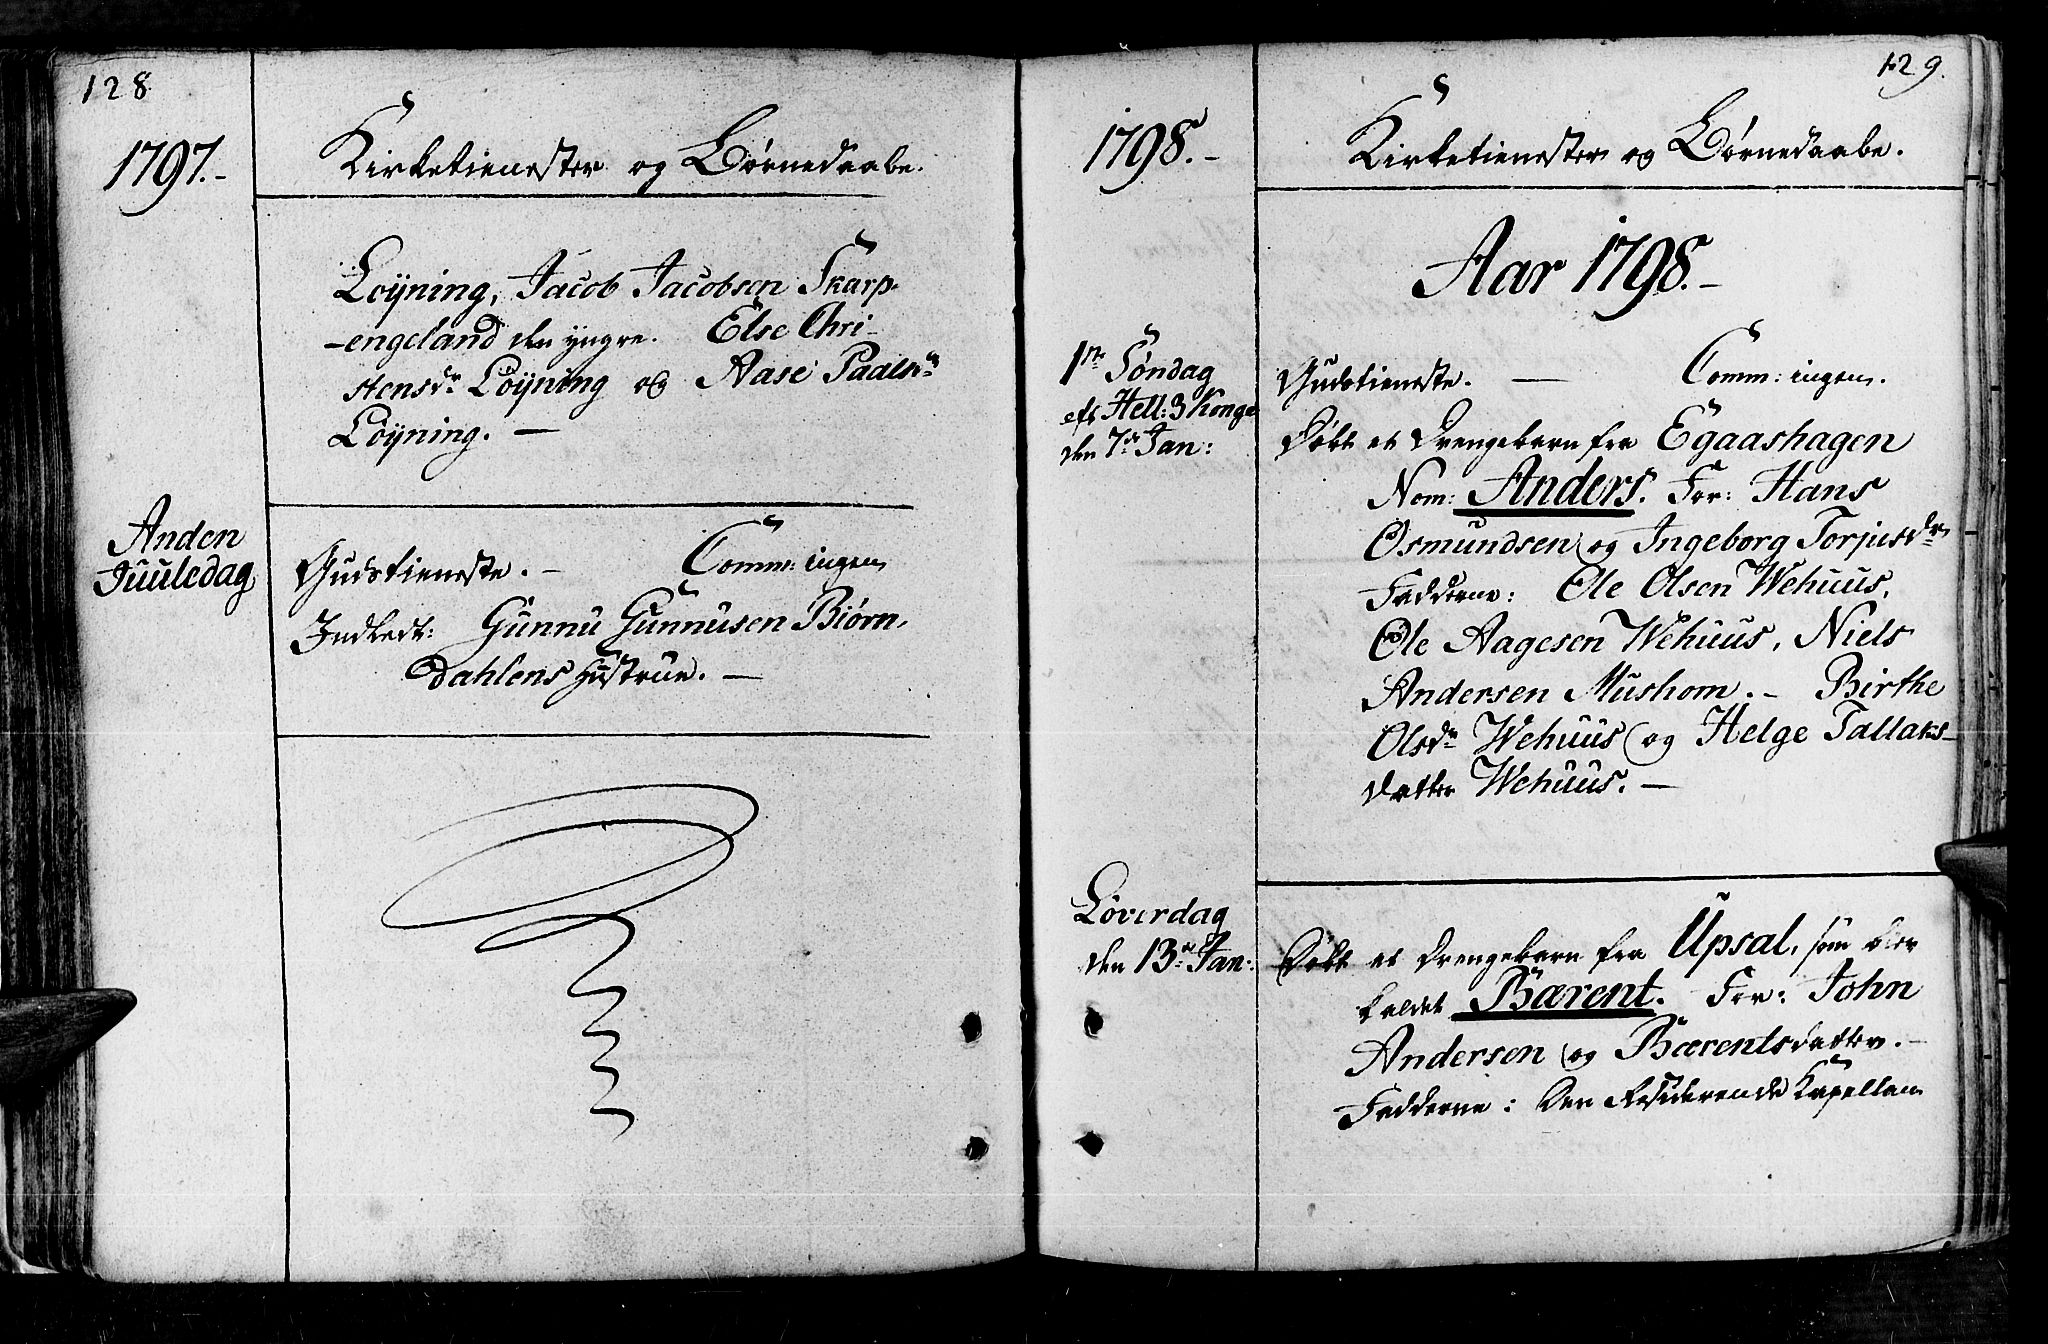 128.
1797.-
Kirketienester og Børnedaabe.
Löÿning, Jacob Jacobsen Skarp-
-engeland den ÿngre. Else Chri-
stensdr Löÿning og Aase Paalsdr
Löÿning. —
Anden
Juuledag
Gudstieneste. - Comm: ingen
Indledt: Gunnu Gunnusen Biörn-
dahlens Hustrue. —
129.
1798.-
Kirketienester og Børnedaabe.
Aar 1798.-
1ste Søndag
eft Hell: 3 Konge
den 7de Jan:
Gudstieneste. — Comm: ingen.
Døbt et Drengebarn fra Egaashagen
Nom: Anders. For: Hans
Osmundsen og Ingeborg Torjusdr
Fadderne: Ole Olsen Wehuus,
Ole Aagesen Wehuus, Niels
Andersen Mushom. - Birthe
Olsdr Wehuus og Helge Tallaks-
datter Wehuus. —
Löverdag
den 13de Jan:
Døbt et Drengebarn fra Upsal, som blev
kaldet Bærent. For: John
Andersen og Bærentsdatter. -
Fadderne: Den Residerende Kapellan